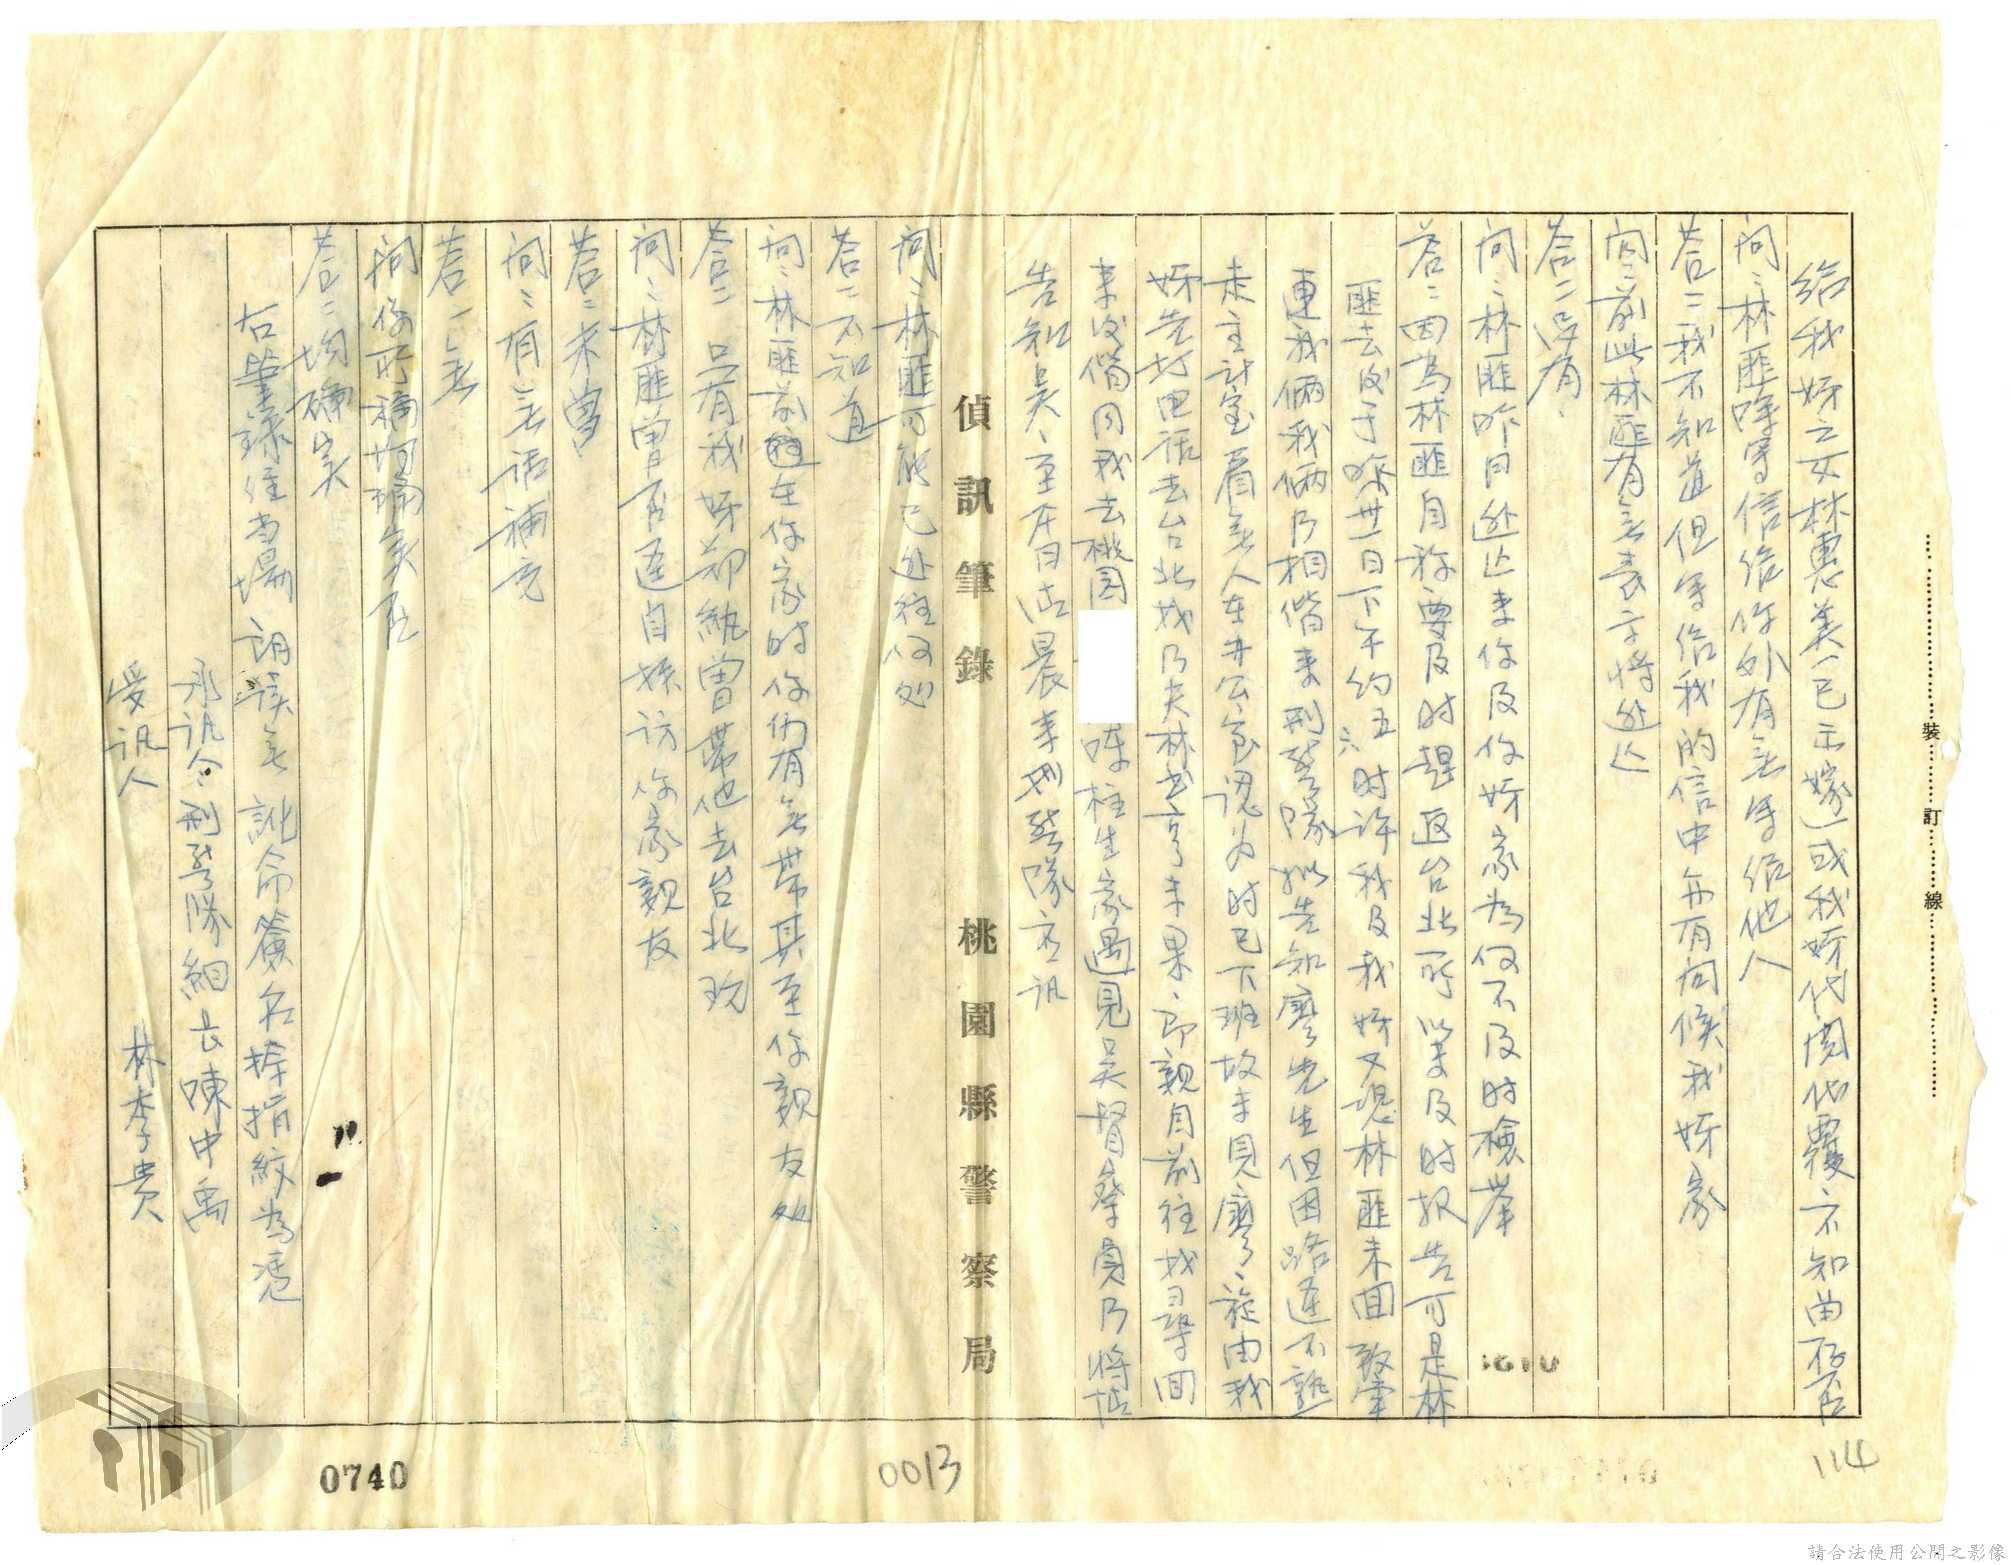 給我姊之女林惠美(已示嫁)或我姊代閱代覆不知由否
問:林匪除寫信給你外有無寫給他人
答:我不知道但寫給我的信中都有問候我姊家
問:前此林匪有無表示將逃亡
答:沒有、
問:林匪昨日逃亡來你及你姊家為何不及時檢舉
答:因為林匪自称要及時趕返台北所以未及時报告可是林
匪去後于昨卅一日下午約五六时許我及我姊又恐林匪未回致牽
連我倆我倆乃相偕来刑警隊拟告知廖先生但因路途不熟
走主計室看無人在办公乃認为时已下班故未見廖、旋由我
姊先打电话去台北找乃夫林书亨未果、即親自前往找尋回
来後偕同我去桃園 陳桂生家遇見吳督察員乃將情
告知吳、至本日清晨来刑警隊应訊
偵訊筆錄 桃園縣警察局
問:林匪可能已逃往何处
答:不知道
問:林匪前往在你家时你們有無带其至你親友处
答: 只有我姊那 曾帶他去台北玩
問:林匪曾否逕自探訪你家親友
答:未曾
問:有無话補充
答:無
問你所稱均確实否
答:均確实
右筆錄經当場朗讀無訛命簽名捺指紋為憑
承訊人刑警隊組長陳中禹
受訊人 林李贵
裝訂線
0740
0013
114
請合法使用公開之影像